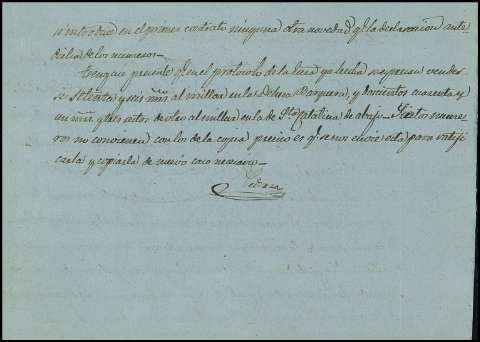 ni introduce en el primer contrato ninguna otra novedad q.e la declaracion ante-
dicha de los numeros.
Tengan presente q.e en el protocolo de la hecha se expresa vender
se setenta y seis al millar en la Dehesa y doscientos cuarenta y
un y tres de otro al millar en la de S.ta Catalina de abajo. Si estos nume-
ros no convienen con los de la copia preciso es q.e se nos envie esta para ratifi
carla y copiarla de nuevo caso necesario.